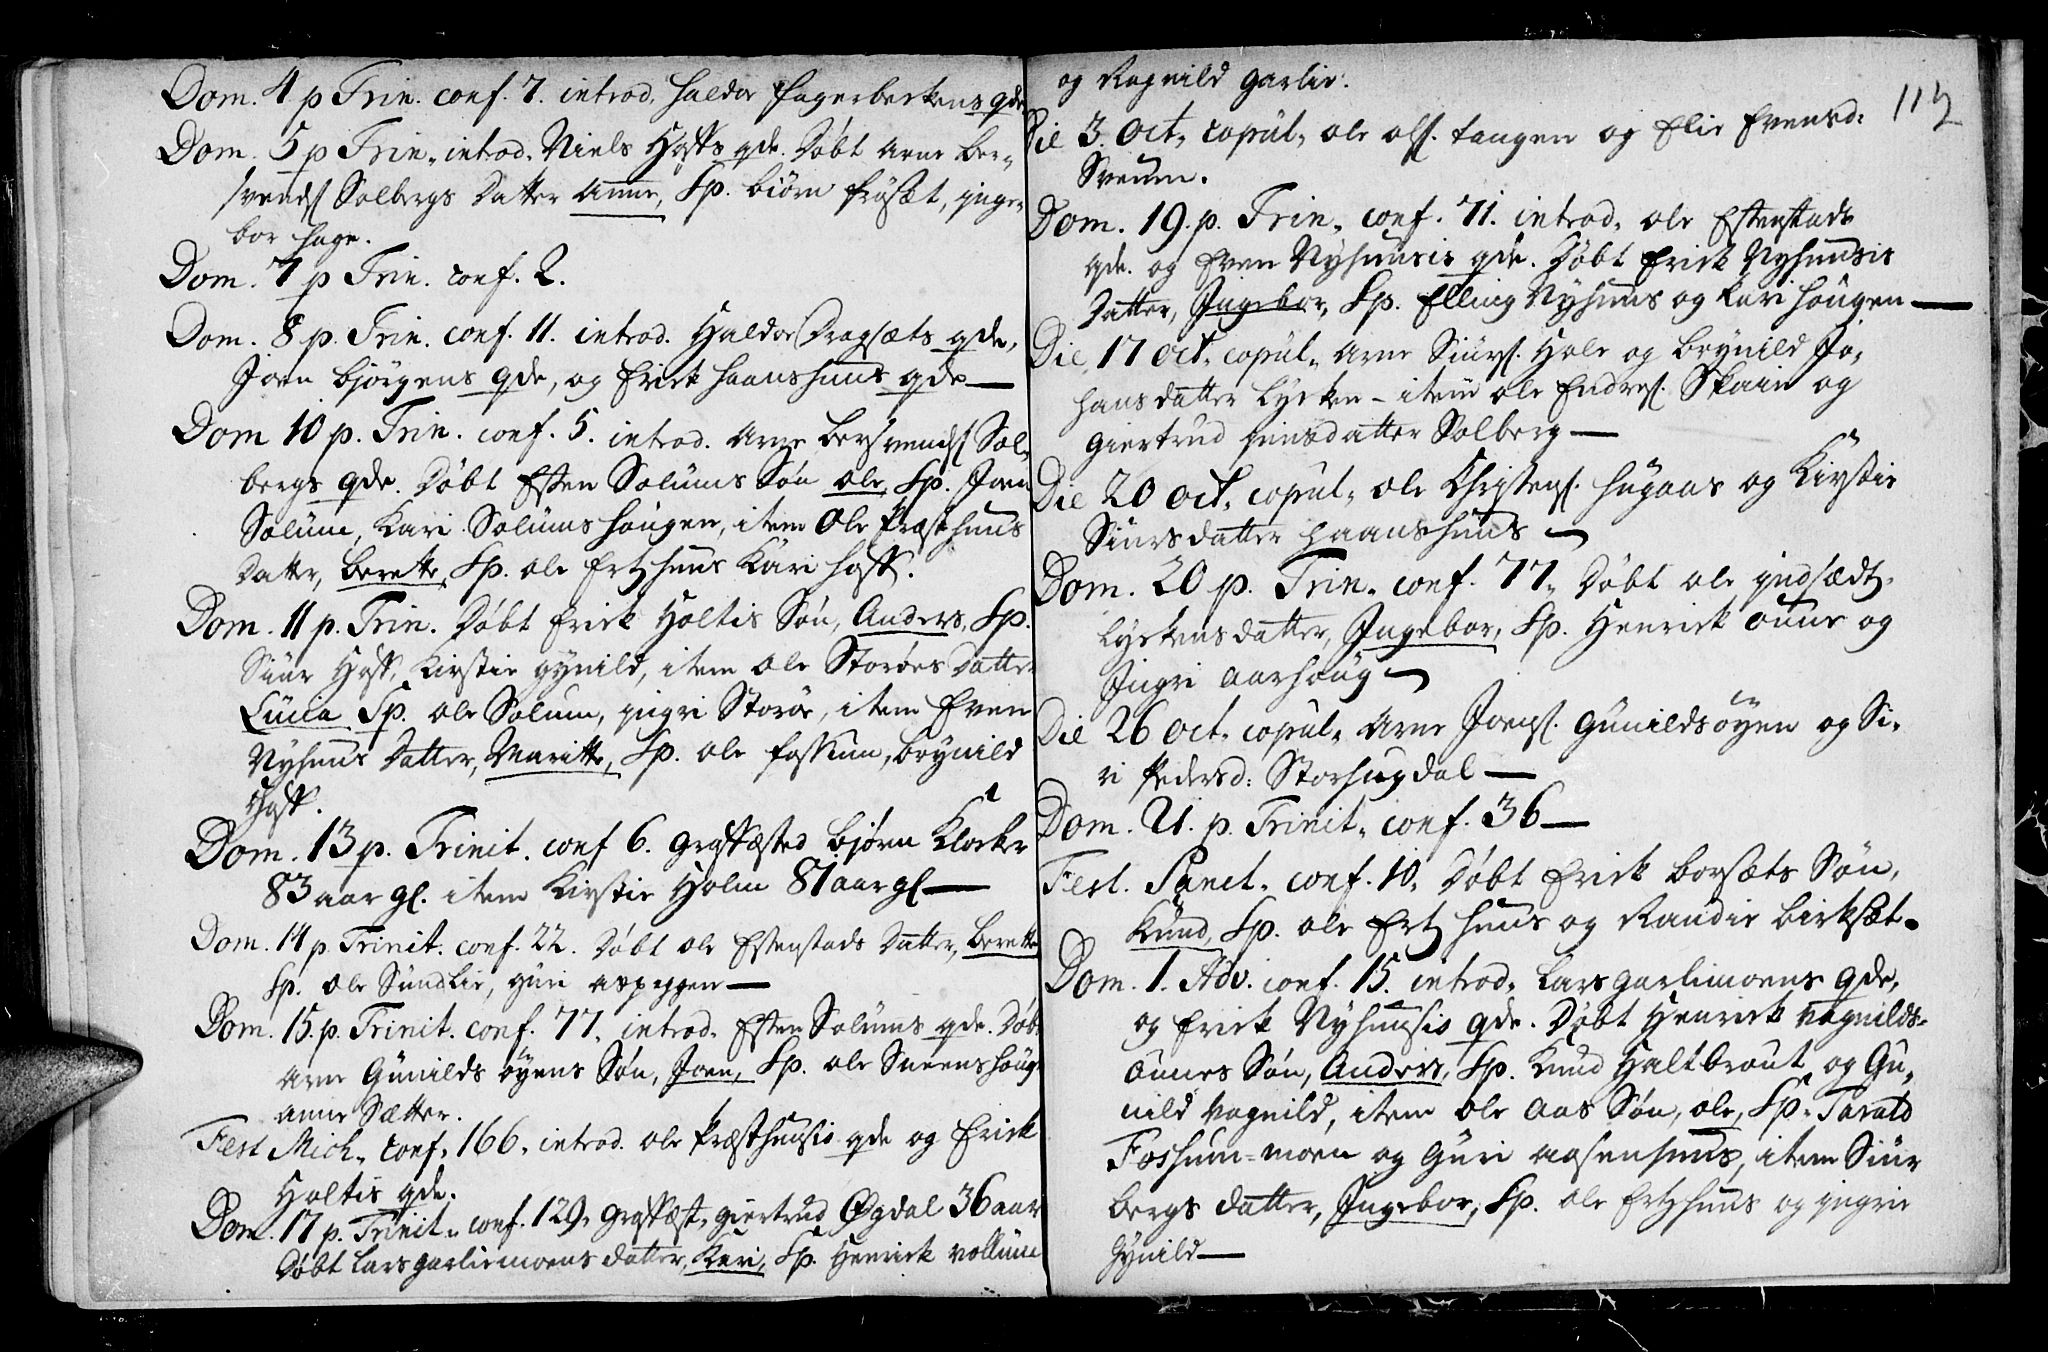 Dom. 4 p Trin. conf. 7. introd. Haldor Fagerbekens qde
Dom. 5 p Trin. introd. Niels Hoffs qde. Døbt Arne Ber-
svends Solbergs Datter Anne, Sp. Biørn Frøsæt, Inge-
bor Hage.
Dom. 7 p Trin. conf. 2.
Dom. 8 p. Trin. conf. 11. introd. Haldor Dragsæts qde,
Joen Bjørgens qde, og Erick Haanshuus qde —
Dom 10 p. Trin. conf. 5. introd. Arne Bersvends Sol-
bergs qde. Døbt Esten Solums Søn Ole, Sp. Joen
Solum, Kari Solumshougen, item Ole Præsthuus
Datter, Berette, Sp. Ole Ertzhuus Kari Hoff.
Dom. 11 p. Trin. Døbt Erick Holtis Søn, Anders, Sp.
Siur Hoff, Kirstie Gynild, item Ole Storøes Datter
Lucia Sp. Ole Solum, Ingri Storøe, item Even
Nyhuus Datter, Maritte, Sp. Ole Fossum, Brynild
Hoff.
Dom. 13 p. Trinit. conf 6. Graffæsted Bjørn Klocker
83 aar gl. item Kirstie Holm 81 aar gl —
Dom. 14 p. Trinit. conf. 22. Døbt Ole Estenstads Datter, Berette
Sp. Ole Sundlie, Guri Aspeggen —
Dom. 15. p. Trinit. conf. 77. introd. Esten Solums qde. Døbt
Arne Gunilds øyens Søn, Joen, Sp. Ole Sneenshoug
Anne Sætter.
Fest Mich. conf. 166. introd. Ole Præsthuusis qde og Erick
Holtis qde.
Dom. 17 p. Trinit. conf. 129. Graffæst. Giertrud Øgdal 36 aar
Døbt Lars Garliemoens Datter, Kari, Sp. Henrick Vollum
og Ragnild Garlie.
117
Die 3. Oct. copul. Ole Ols. Tangen og Elie Evensd:
Sveum.
Dom. 19. p. Trin. conf. 71. introd. Ole Estenstads
qde. og Even Nyhuusis qde. Døbt Erick Nyhuusis
Datter, Ingebor, Sp. Elling Nyhuus og Kari Hougen —
Die 17 Oct. copul. Arne Siurs. Hole og Brynild Jo-
hansdatter Lycken - item Ole Endres. Skaie og
Giertrud Jensdatter Solberg —
Die 20 Oct. copul. Ole Christens. Hugaas og Kirstie
Siursdatter Haanshuus —
Dom. 20 p. Trin. conf. 77. Døbt Ole Indsædt.
Lyckens datter, Ingebor, Sp. Henrick Aune og
Ingri Aarhoug —
Die 26 Oct. copul. Arne Joens. Gunildsøyen og Si-
ri Pedersd: Storhugdal —
Dom. 21. p. Trinit. conf. 36 —
Fest. Sanct. conf. 10. Døbt Erick Borsæts Søn,
Knud, Sp. Ole Ertzhuus og Randie Birksæt.
Dom. 1. Adv. conf. 15. introd. Lars Garlimoens qde,
og Erick Nyhuusis qde. Døbt Henrick Vognilds-
aunes Søn, Anders, Sp. Knud Haltbraut, og Gu-
nild Vognild, item Ole Aas Søn, Ole, Sp. Tarald
Fossum-moen og Guri Aasenhuus, item Siur
Bergs Datter, Ingebor, Sp. Ole Ertzhuus og Ingrie
Gynild —